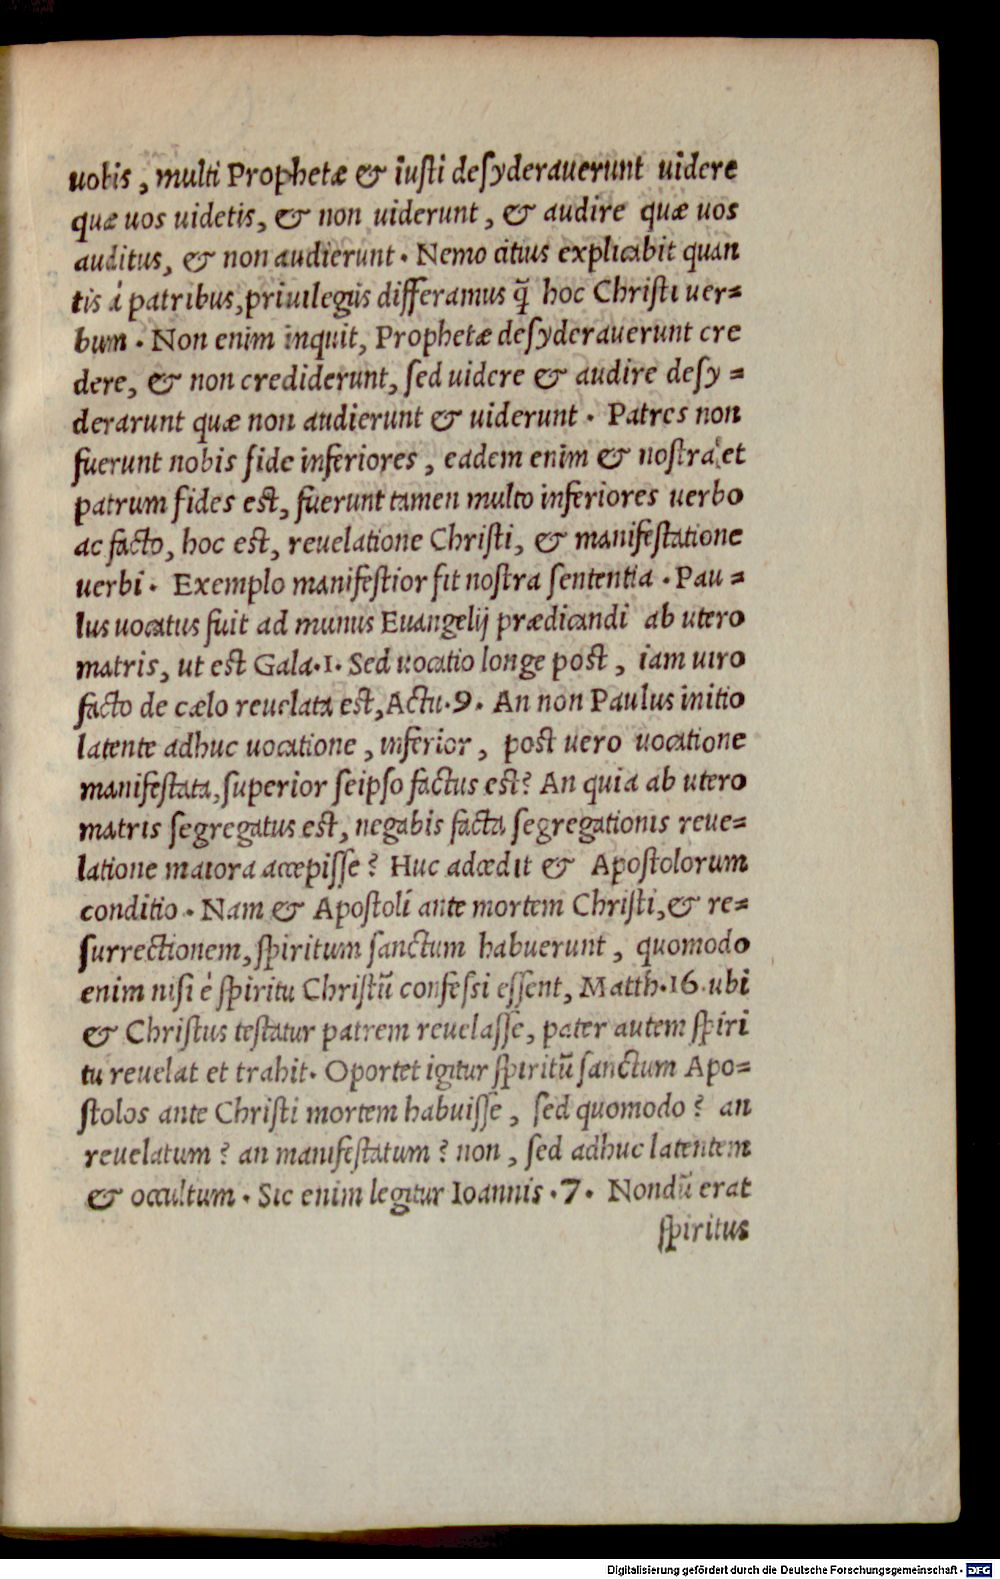 uobis, multi Prophetæ & iusti desyderauerunt uidere
quæ uos uidetis, & non uiderunt, & audire quæ uos
auditus, & non audierunt. Nemo citius explicabit quan
tis á patribus, priuilegiis differamus q̃ hoc Christi uer=
bum. Non enim inquit, Prophetæ desyderauerunt cre
dere, & non crediderunt, sed uidere & audire desy=
derarunt quæ non audierunt & uiderunt. Patres non
fuerunt nobis fide inferiores, eadem enim & nostra et
patrum fides est, fuerunt tamen multo inferiores uerbo
ac facto, hoc est, reuelatione Christi, & manifestatione
uerbi. Exemplo manifestior fit nostra sententia. Pau=
lus uocatus fuit ad munus Euangelij prædicandi ab utero
matris, ut est Gala.1. Sed uocatio longe post, iam uiro
facto de cælo reuelata est, Actu.9. An non Paulus initio
latente adhuc uocatione, inferior, post uero uocatione
manifestata, superior seipso factus est? An quia ab utero
matris segregatus est, negabis facta segregationis reue=
latione maiora accepisse? Huc adcedit & Apostolorum
conditio. Nam & Apostoli ante mortem Christi, & re=
surrectionem, spiritum sanctum habuerunt, quomodo
enim nisi é spiritu Christũ confessi essent, Matth.16. ubi
& Christus testatur patrem reuelasse, pater autem spiri
tu reuelat et trahit. Oportet igitur spiritũ sanctum Apo=
stolos ante Christi mortem habuisse, sed quomodo? an
reuelatum? an manifestatum? non, sed adhuc latentem
& occultum. Sic enim legitur Ioannis.7. Nondũ erat
spiritus
Digitalisierung gefördert durch die Deutsche Forschungsgemeinschaft - DFG